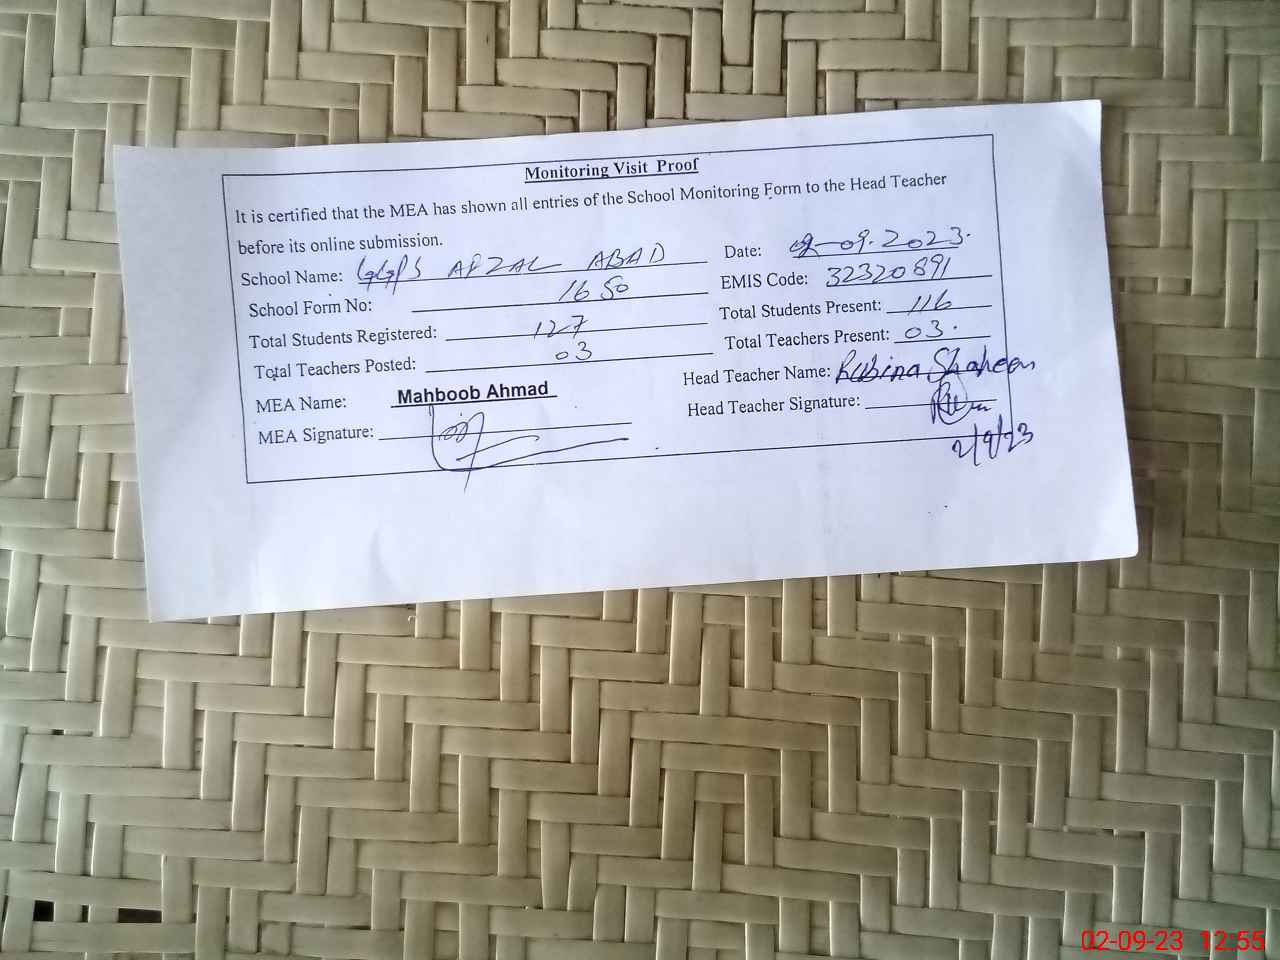 Monitoring Visit Proof
It is certified that the MEA has shown all entries of the School Monitoring Form to the Head Teacher
before its online submission.
Date: 02-09-2023.
School Name: GGPS AFZAL ABAD
EMIS Code: 32320891
School Form No: 1650
Total Students Present: 116
Total Students Registered: 127
Total Teachers Present: 03.
Total Teachers Posted: 03
Head Teacher Name: Rubina Shaheen
MEA Name: Mahboob Ahmad
Head Teacher Signature:
MEA Signature:
2/9/23
02-09-23 12:55